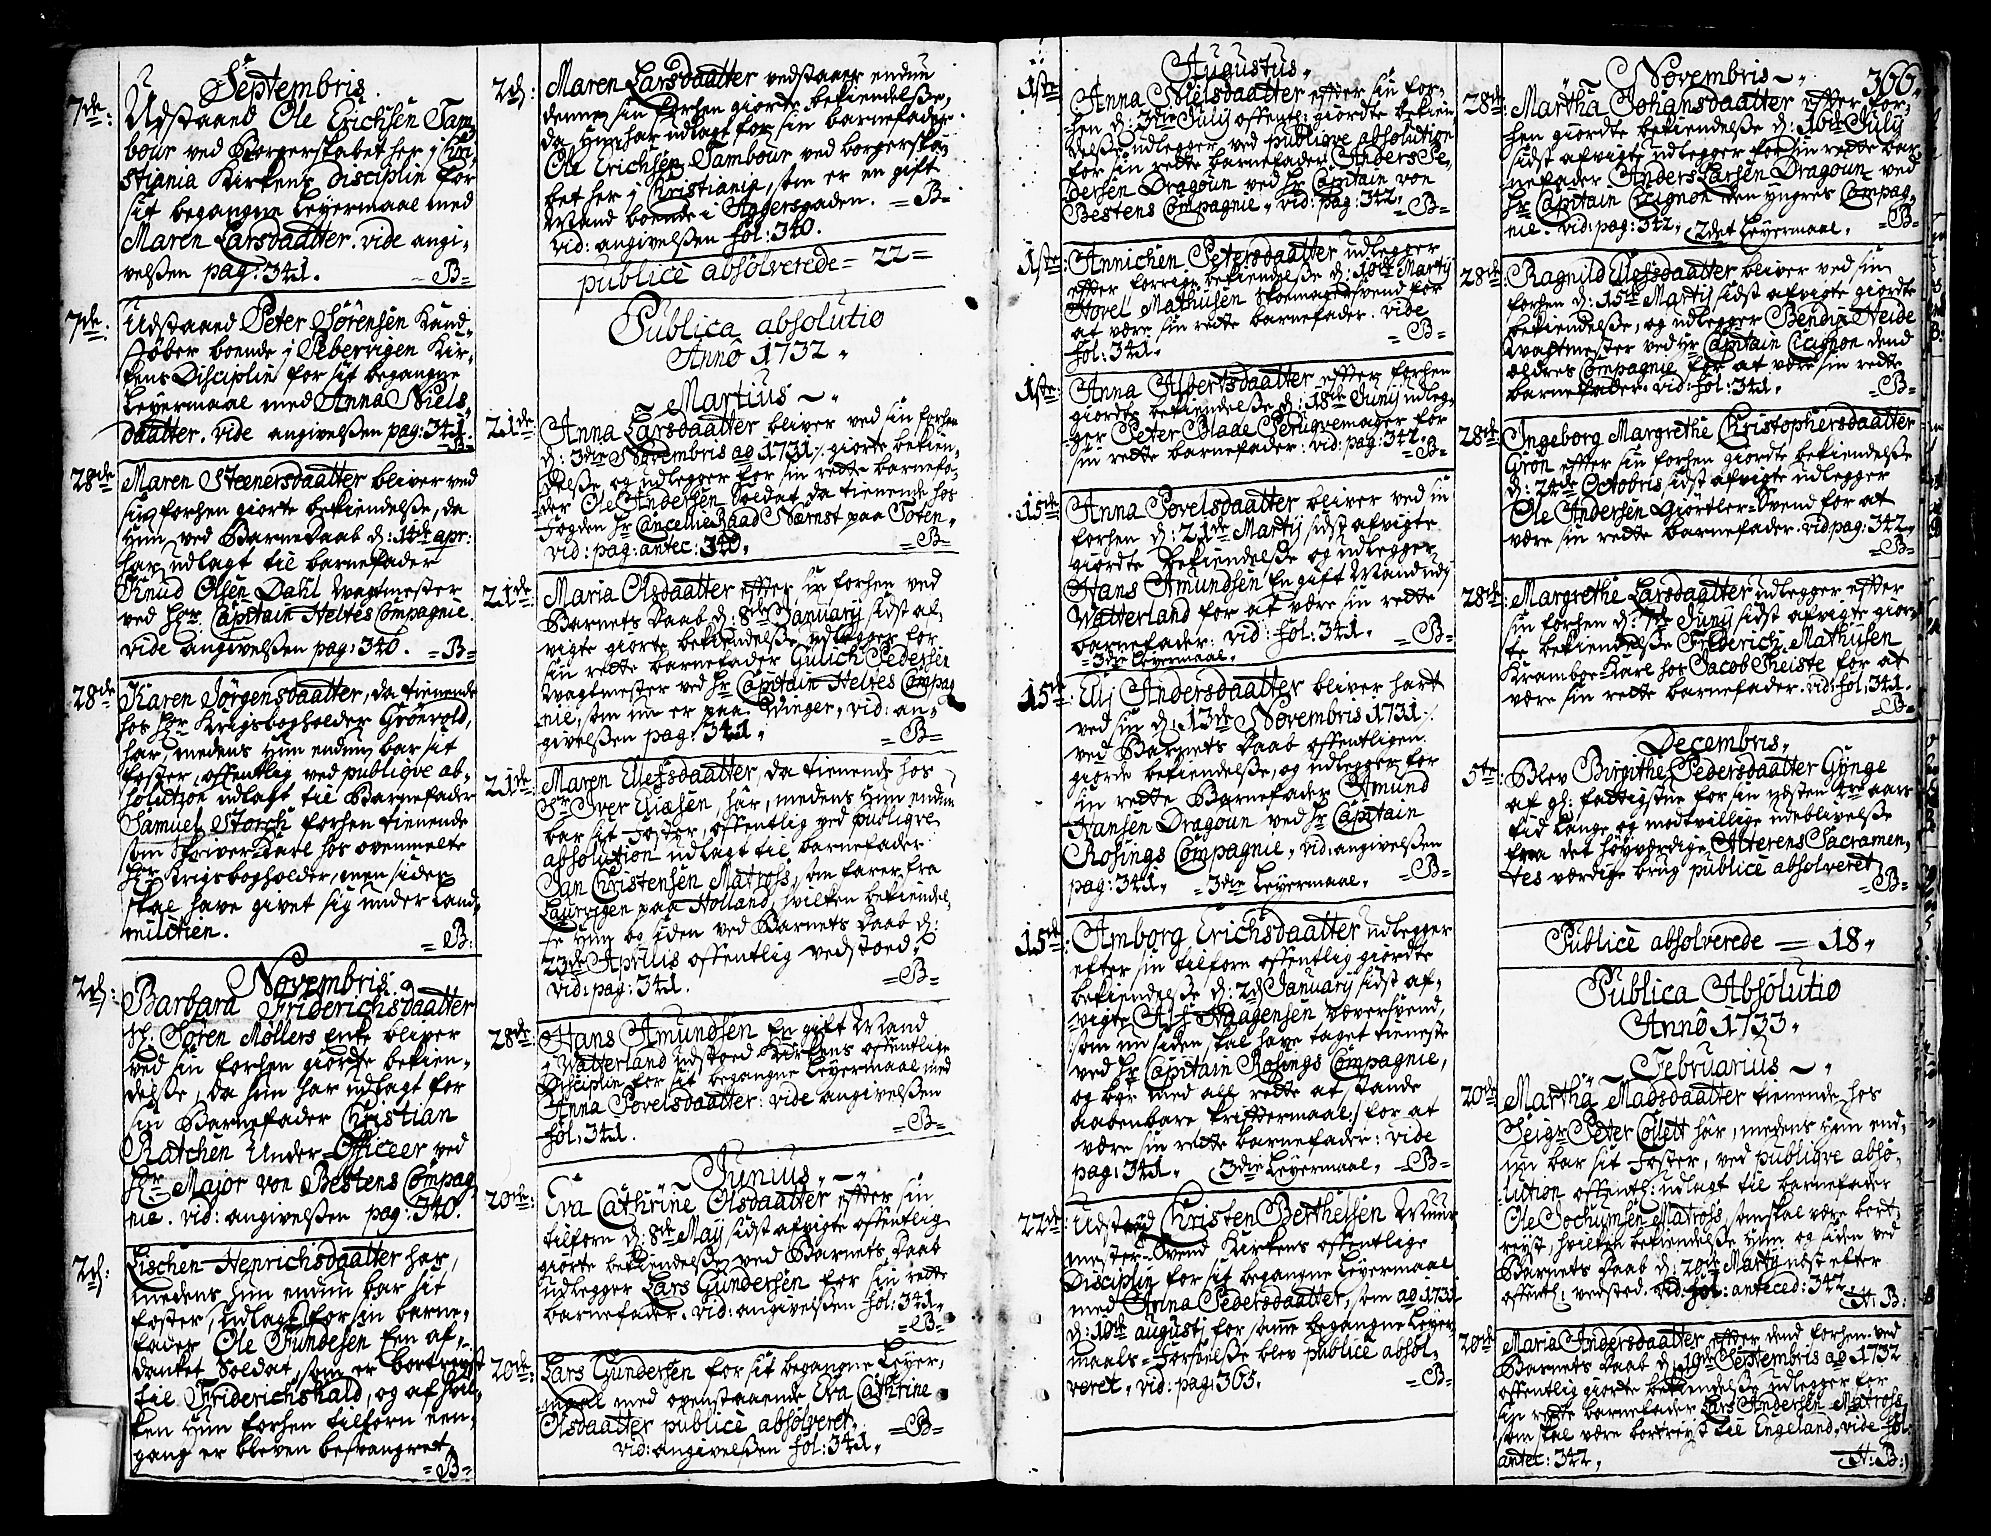 Septembris.
7de:
Udstaaed Ole Erichsen Tam-
bour ved Borgerskabet her i Chri-
stiania Kirkens disciplin for
sit begangne Leyermaal med
Maren Larsdaatter. vide angi-
velsen pag: 341. =B=
7de.
Udstaaed Peter Sörensen Kand-
stöber boende i Pebervigen Kir-
kens Disciplin for sit begangne
Leyermaal med Anna Niels-
daatter. vide angivelsen pag: 341.
=B=
28de
Maren Steenersdaatter bliver ved
sin forhen giorte bekiendelse, da
hun ved Barne Daab d: 14de apr:
har udlagt til barnefader
Knud Olsen Dahl Wagtmester
ved Hr. Capitain Heltes Compagnie.
vide angivelsen pag: 340. =B=
28de
Karen Jörgensdaatter, da tienende
hos Hr Krigsbogholder Grönvold,
har, medens hun endnu bar sit
foster, offentlig ved publiqve ab-
solution udlagt til Barnefader
Samuel Storch forhen tienende
som Skriver-Karl hos ovenmelte
Hr Krigsbogholder, men siden
skal have givet sig under Land-
militien. =B:
Novembris.
2d:
Barbara Friderichsdaatter
Sl: Sören Möllers enke bliver
ved sin forhen giorde bekien-
delse, da hun har udlagt for
sin Barnefader Christian
Ratchen Under-Officeer ved
Hr Major von Bestens Compag
nie. vid: angivelsen pag: 340.
2d:
Lischen Henrichsdaatter har,
medens hun endnu bar sit
foster, udlagt for sin barne-
fader Ole Gundesen Een af-
danket Soldat, som er bortreyst
til Friderichshald, og af hvil-
ken hun forhen tilforn een-
gang er bleven besvangret.
=B=
2d:
Maren Larsdaatter vedstaaer endnu
denne sin forhen giorde bekiendelse,
da hun har udlagt for sin barnefader
Ole Erichsen Tambour ved borgerska-
bet her i Christiania, som er en gift
Mand boende i Aggersgaden. =B=
vid: angivelsen fol: 340.
publicè absolverede = 22 =
Publica absolutio
Annô 1732.
Martius
21de
Anna Larsdaatter bliver ved sin forhen
d: 3die Novembris ao 1731 giorte bekien-
delse og udlegger for sin rette barnefa-
der Ole Andersen Soldat, da tienende hos
Fogden Hr Cancellie Raad Nærnst paa Toten.
vid: pag: antec: 340. =B=
21de
Maria Olsdaatter effter sin forhen ved
Barnets Daab d: 8de January sidst af-
vigte giorte bekiendelse udlegger for
sin rette barnefader Gulich Pedersen
Wagtmester ved Hr Capitain Heltes Compag
nie, som nu er paa Winger, vid: an-
givelsen pag: 341. =B=
21de
Maren Ellefsdaatter, da tienende hos
Sr Iver Eliasen, har, medens hun endnu
bar sit Foster, offentlig ved publiqve
absolution udlagt til barnefader
Jan Christensen Matross, som farer fra
Laurvigen paa Holland, hvilken bekiendel-
se hun og siden ved Barnets Daab d:
23de Aprilis offentlig vedstoed.
vid: pag: 341. =B=
28de
Hans Amundsen En gift Mand
i Watterland udstoed Kirkens offentlige
Disciplin for sit begangne Leyermaal med
Anna Povelsdaatter: vide angivelsen
fol: 341. =B=
Junius
20de:
Eva Cathrine Olsdaatter efter sin
tilforn d: 8de May sidst afvigte offentlig
giorte bekiendelse ved Barnets Daab
udlegger Lars Gundersen for sin rette
barnefader. vid: angivelsen fol: 341.
=B=
20de
Lars Gundersen for sit begangne Leyer-
maal med ovenstaaende Eva Cathrine
Olsdaatter publicè absolveret.
vid: angivelsen fol: 341. =B=
Augustus.
1ste
Anna Nielsdaatter effter sin for-
hen d: 3die July offentl: giordte bekien
delse udlegger ved publiqve absolution
for sin rette barnefader Anders Pe-
dersen Dragoun ved Hr Capitain von
Bestens Compagnie. vid: pag: 342. =B=
1ste:
Annichen Petersdaatter udlegger
effter forrige bekiendelse d: 19de Martij
Povel Mathiisen Skomagersvend for
at være sin rette barnefader. vide
fol: 341. =B=
1ste:
Anna Albertsdaatter effter forhen
giordte bekiendelse d: 18de Junij udleg-
ger Peter Blade Peruqvemager for
sin rette barnefader: vid: pag: 342. =B=
15de:
Anna Povelsdaatter bliver ved sin
forhen d: 21de Martij sidst afvigte
giordte Bekiendelse og udlegger
Hans Amundsen En gift Mand udj
Watterland for at være sin rette
barnefader: vid: fol: 341. =B=
=3die Leyermaal.
15de:
Elj Andersdaatter bliver hart
ved sin d: 13de Novembris 1731
ved Barnets Daab offentligen
giorde bekiendelse, og udlegger for
sin rette Barnefader Amund
Hansen Dragoun ved Hr Capitain
Rosings Compagnie, vid: angivelsen
pag: 341. =3die Leyermaal. =B=
15de:
Amborg Erichsdaatter udlegger
efter sin tilforn offentlig giordte
bekiendelse d: 2d January sidst af-
vigte Alf Haagensen Wæversvend,
som nu siden skal have taget tieneste
ved Hr Capitain Rosings Compagnie,
og bör med all rette at stande
aabenbare skrifftermaal, for at
være sin rette barnefader: vide
pag: 341. 3die Leyermaal. =B=
22de:
Udstaaed Christen Berthelsen Muur
mester-Svend Kirkens offentlige
Disciplin for sit begangne Leyermaal
med Anna Pedersdaatter, som ao 1731
d: 19de augusti for samme begangne Leyer-
maals-Forseelse blev publicè absol-
veret. vid: pag: 365. =B=
Novembris 366.
28de:
Martha Johansdaatter effter for-
hen giordte bekiendelse d: 16de July
sidst afvigte udlegger for sin rette bar
nefader Anders Larsen Dragoun ved
Hr Capitain Cicignon den yngres Compag
nie. vid: pag: 342. 2det Leyermaal. =B=
28de:
Ragnild Ellefsdaatter bliver ved sin
forhen d: 15de Martij sidst afvigte giordte
bekiendelse, og udlegger Bendix Heide
Wagtmester ved Hr Capitain Cicignon dend
ældres Compagnie for at være sin rette
barnefader. vid: fol: 341. =B=
28de
Ingeborg Margrethe Christophersdaatter
Grön effter sin forhen giordte bekiendelse
d: 24de Octobris sidst afvigte udlegger
Ole Andersen Giörtler-Svend for at
være sin rette barnefader. vid pag: 342.
=B=
28de:
Margrethe Larsdaatter udlegger effter
sin forhen d: 7de Junij sidst afvigte giord-
te bekiendelse Friderich Mathiisen
Kramboe-Karl hos Jacob Theiste for at
være sin rette barnefader. vid: fol: 341.
=B=
Decembris.
5te:
Blev Birgithe Pedersdaatter Gynge
af gl: fattigstue for sin udsten 4re aars
tid lange og modtvillige udeblivelse
fraa det höyværdige Alterens Sacramen-
tes værdige brug publicè absolveret
=B=
Publicè absolverede = 18.
Publica Absolutio
Annô 1733.
Februarius
20de
Martha Madsdaatter tienende hos
Seigr Peter Collett har, medens hun end-
nu bar sit Foster, ved publiqve abso-
lution offentl: udlagt til barnefader
Ole Jochumsen Matross, som skal være bort-
reyst, hvilken bekiendelse hun og siden ved
Barnets Daab d: 29de Martij nest efter
offentl: vedstod. vid: fol: anteced: 342.
H: B:
20de
Maria Andersdaatter effter dend forhen ved
Barnets Daab d: 19de Septembris ao 1732
offentlig giorte bekiendelse udlegger for
sin rette barnefader Lars Andersen Matross
som skal være bortreyst til Engeland, vide fol:
antec: 342. H: B: